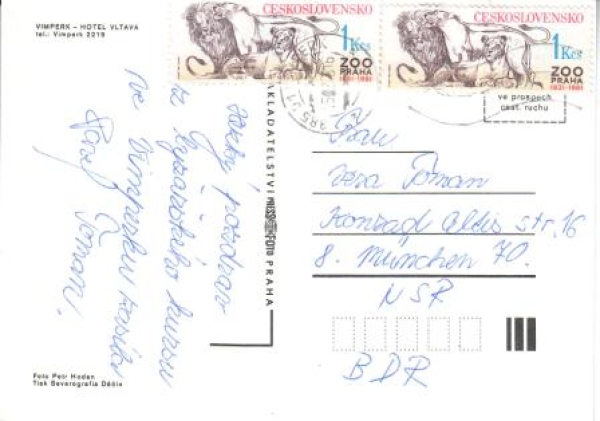 VIMPERK – HOTEL VLTAVA
tel.: Vimperk 2219
ČESKOSLOVENSKO
1 Kčs
ZOO
PRAHA
1931-1981
ČESKOSLOVENSKO
1 Kčs
ZOO
PRAHA
1931-1981
ve prospěch
cest. ruchu
pozdrav
z lyžařského kursu
ve Vimperku
Toman
NAKLADATELSTVÍ PRESSFOTO PRAHA
Frau
Vera Toman
Konrad Celtis str. 16
8. München 70.
NSR
BDR
Foto Petr Hodan
Tisk Severografia Děčín